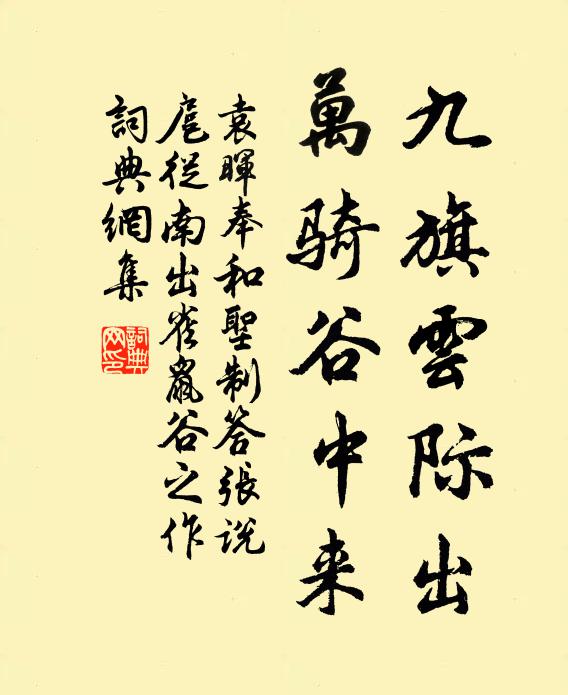 九旗雲际出
萬骑谷中来
袁暉奉和聖制答張说
扈從南出雀鼠谷之作
詞典網集
詞典网印